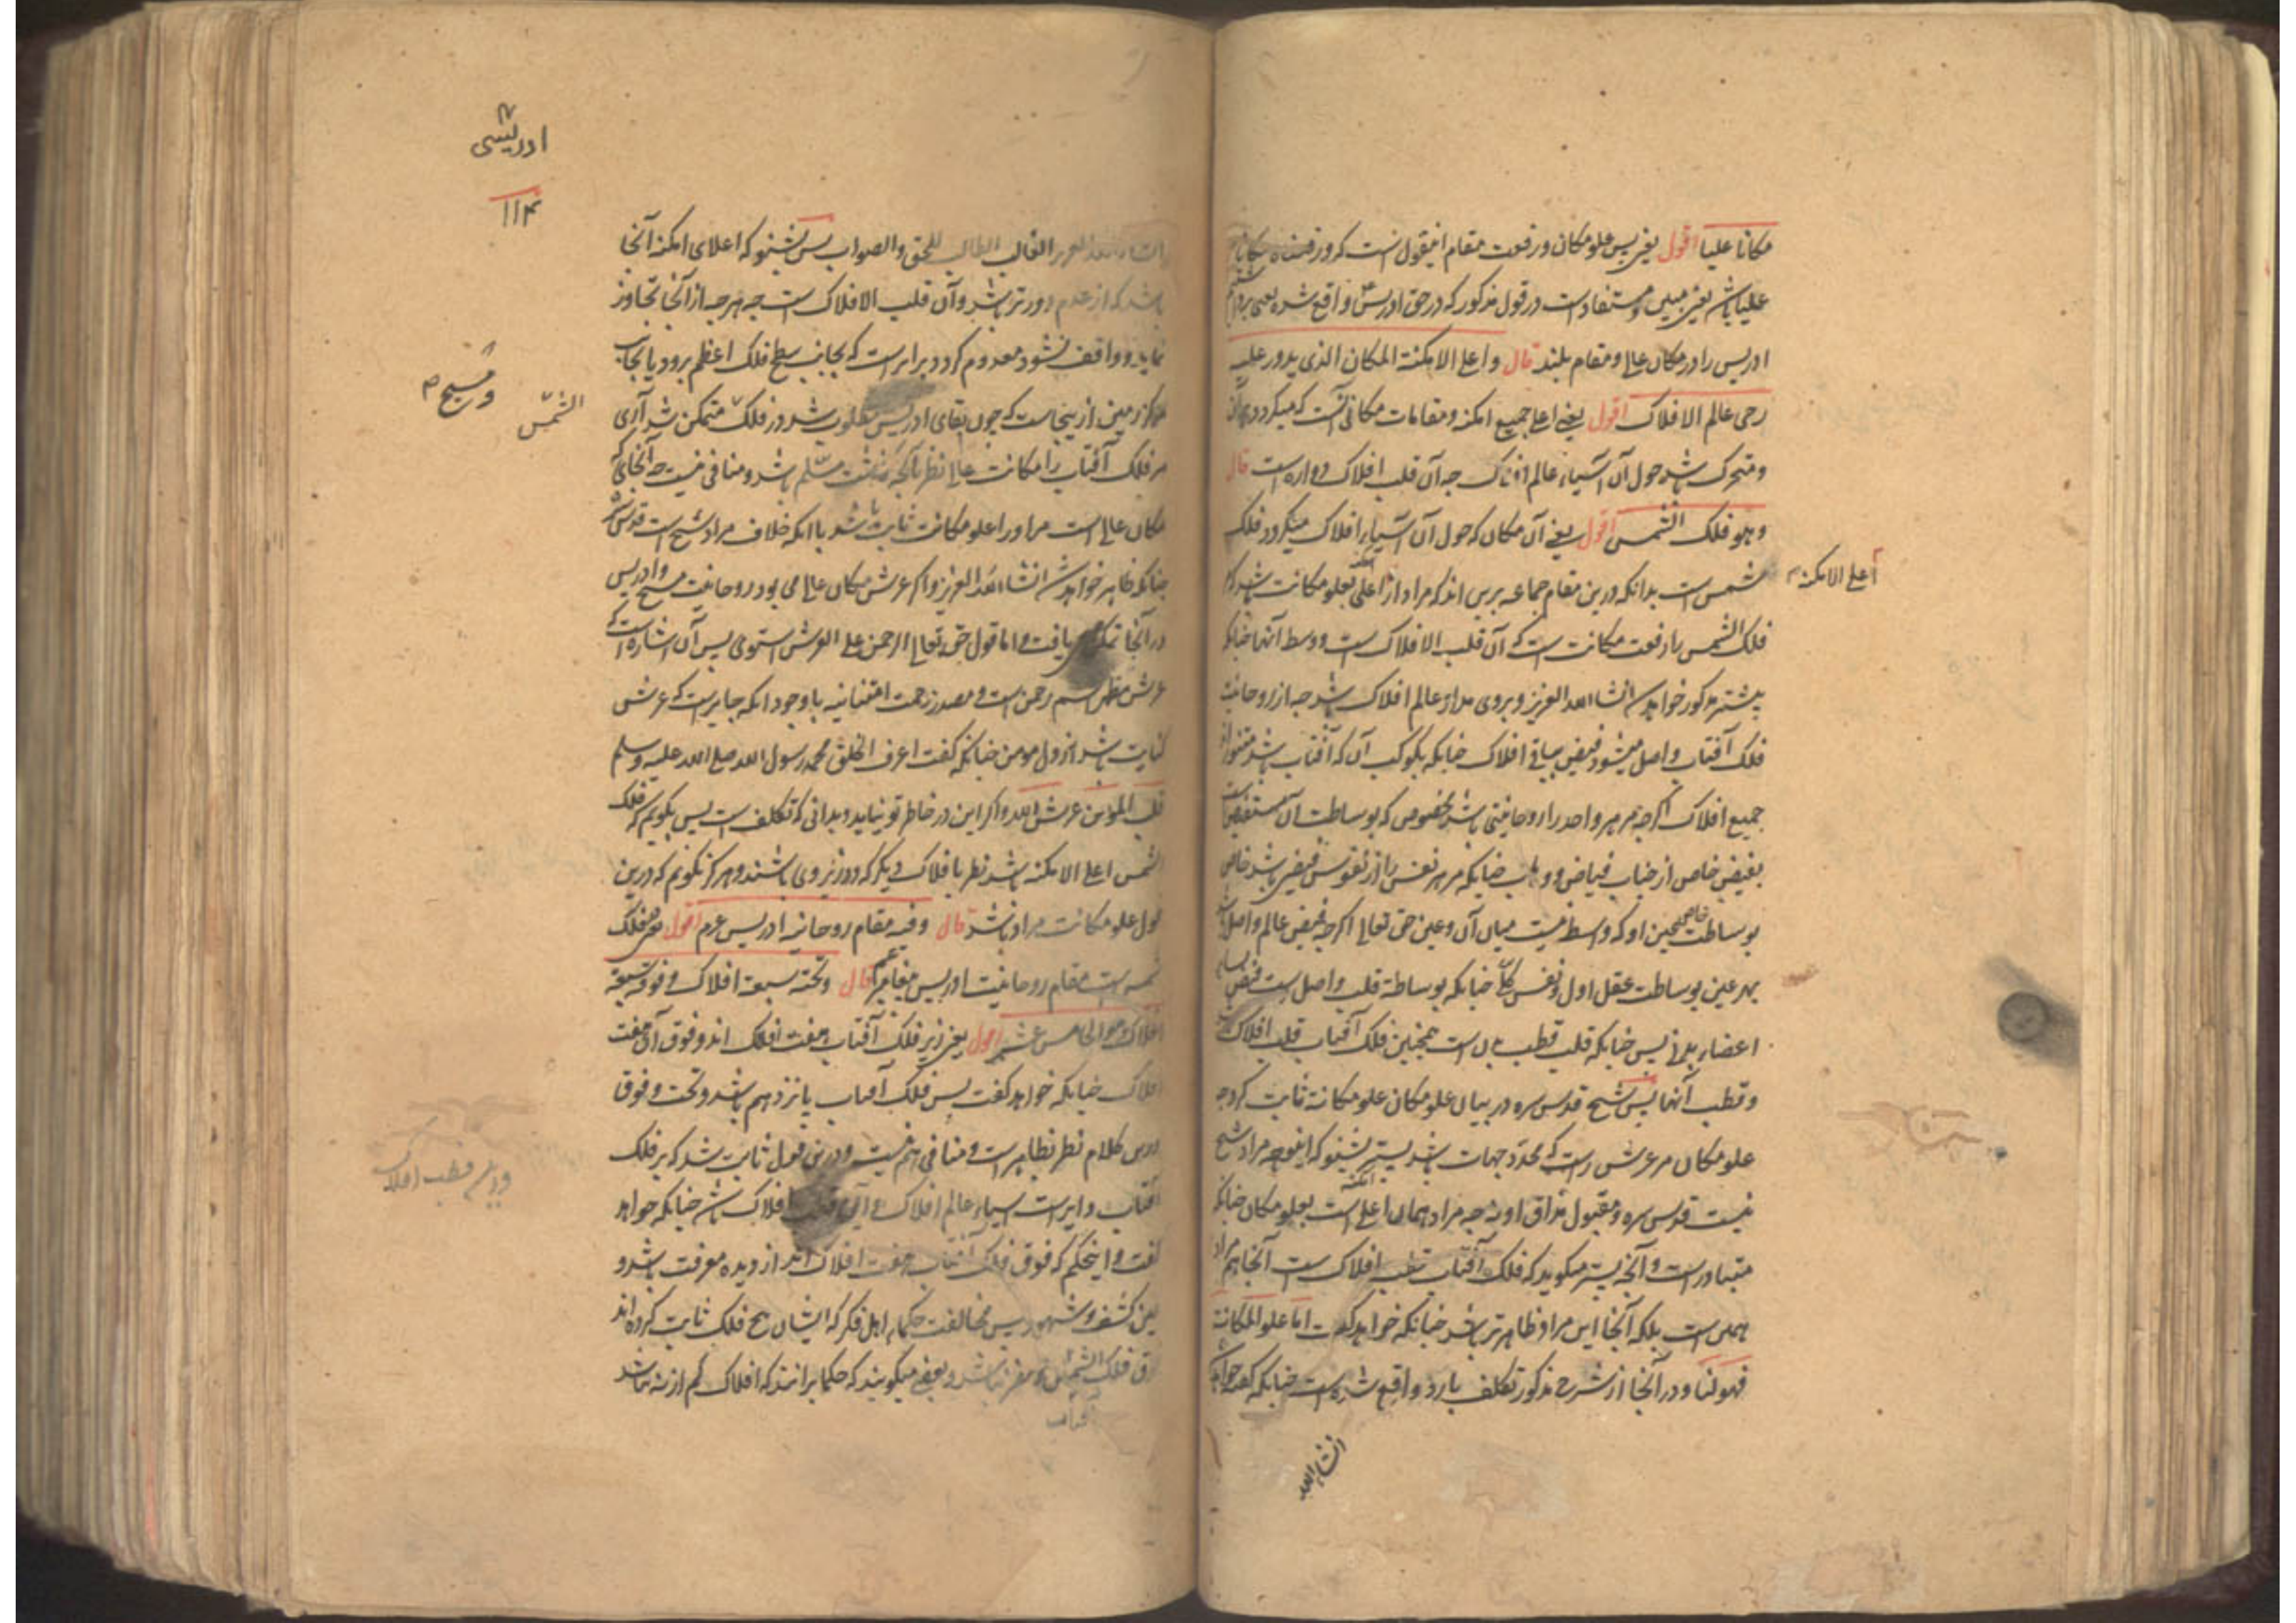 مکانا علیا اقول یعنی پس علو مکان و رفعت مقام اینقول است که ورفعناه مکانا
علیا باشد یعنی مبین و مستفادست در قول مذکور که در حق ادریس واقع شده یعنی برداشتیم
ادریس را در مکان عالی و مقام بلند قال واعلی الامکنة المکان الذی یدور علیه
رحی عالم الافلاک اقول یعنی اعلی جمیع امکنه و مقامات مکانی آنست که میگردد بران
و متحرک باشد حول آن آسیاء عالم افلاک چه آن قلب افلاک دواره است قال
وهو فلک الشمس اقول یعنی آن مکان که حول آن آسیاء افلاک میگردد فلک
شمس است بدانکه درین مقام جماعه برین اند که مراد از اعلی امکنه بعلو مکانت باشد که
اعلی الامکنه
فلک الشمس با رفعت مکانت است که آن قلب الافلاک است و وسط آنها چنانکه
بیشتر مذکور خواهد شد انشاء الله العزیز و بروی مدار عالم افلاک باشد چه از روحانیت
فلک آفتاب واصل میشود فیض بباقی افلاک چنانکه بکوکب آن که آفتاب باشد متنور اند
جمیع افلاک اگرچه مر هر واحد را روحانیتی باشد مخصوص که بوساطت آن مستفیض است
بفیض خاص از جناب فیاض و وهاب چنانکه مر هر نفس را از نفوس فیضی باشد خاص
بوساطت خاص عین او که واسطه نیست میان آن و عین حق تعالی اگرچه فیض عالم واصل باشد
بهر عین بوساطت عقل اول و نفس کل چنانکه بوساطة قلب واصل است فیض بسایر
اعضاء بدن پس چنانکه قلب قطب بدن است همچنین فلک آفتاب قلب افلاک است
و قطب آنها پس شیخ قدس سره در بیان علو مکان علو مکانة ثابت کرد چه
علو مکان مر عرش راست که محدد جهات باشد پستر بشنو که اینوجه مراد شیخ
نیست قدس سره و مقبول مذاق او نه چه مراد همان اعلی امکنه است بعلو مکان چنانکه
متبادر است و آنچه پستر میگوید که فلک آفتاب قطب افلاک است آنجا هم مراد
همین است بلکه آنجا این مراد ظاهرتر باشد چنانکه خواهد گفت اما علو المکانت
فهو لنا و در آنجا از شرح مذکور تکلف بارد واقع شده است چنانکه گفته خواهد
انشاء الله
ادریسی
۱۱۴
للحق والصواب پس بشنو که اعلای امکنه آنجا
باشد که از عدم دورتر باشد و آن قلب الافلاک است چه هرچه از آنجا تجاوز
نماید و واقف نشود معدوم گردد برابر است که بجانب سطح فلک اعظم برود یا بجانب
مرکز زمین ازینجاست که چون بقای ادریس مطلوب شد در فلک متمکن شد آری
ومسیح
الشمس
مر فلک آفتاب را مکانت عالی نظر بآنچه گذشت مسلم باشد و منافی نیست چه آنجای که
مکان عالی است مر او را علو مکانت ثابت باشد با آنکه خلاف مراد شیخ است قدس سره
چنانکه ظاهر خواهد شد انشاء الله العزیز و اگر عرش مکان عالی می بود روحانیت مسیح و ادریس
در آنجا تمکن می یافت و اما قول حق تعالی الرحمن علی العرش استوی پس آن اشاره است که
عرش مظهر اسم رحمن است و مصدر رحمت امتنانیه با وجود آنکه جایز است که عرش
کنایت باشد از دل مومن چنانکه گفت اعرف الخلق محمد رسول الله صلی الله علیه وسلم
قلب المؤمن عرش الله و اگر این در خاطر تو نیاید و بدانی که تکلف است پس بگویم که فلک
الشمس اعلی الامکنه باشد نظر با فلاک دیگر که دورتر وی باشند و هرگز نگویم که درین
قول علو مکانت مراد باشد قال وفیه مقام روحانیة ادریس عم اقول در فلک
شمس است مقام روحانیت ادریس پیغامبر قال وتحته سبعة افلاک وفوقه سبعة
افلاک وهو الخامس عشر اقول یعنی زیر فلک آفتاب هفت افلاک اند و فوق آن هفت
افلاک چنانکه خواهد گفت پس فلک آفتاب پانزدهم باشد و تحت و فوق
درین کلام نظر بظاهر است و منافی هم نیست و درین قول ثابت شد که بر فلک
آفتاب دایر است آسیاء عالم افلاک و آن قطب افلاک باشد چنانکه خواهد
ودایم قطب افلاک
گفت و این حکم که فوق فلک آفتاب هفت افلاک اند از دیده معرفت باشد و
عین کشف و شهود پس مخالفت حکماء اهل فکر که ایشان پنج فلک ثابت کرده اند
فوق فلک الشمس مضر نباشد و بعضی میگویند که حکما برانند که افلاک کم از نه نباشد